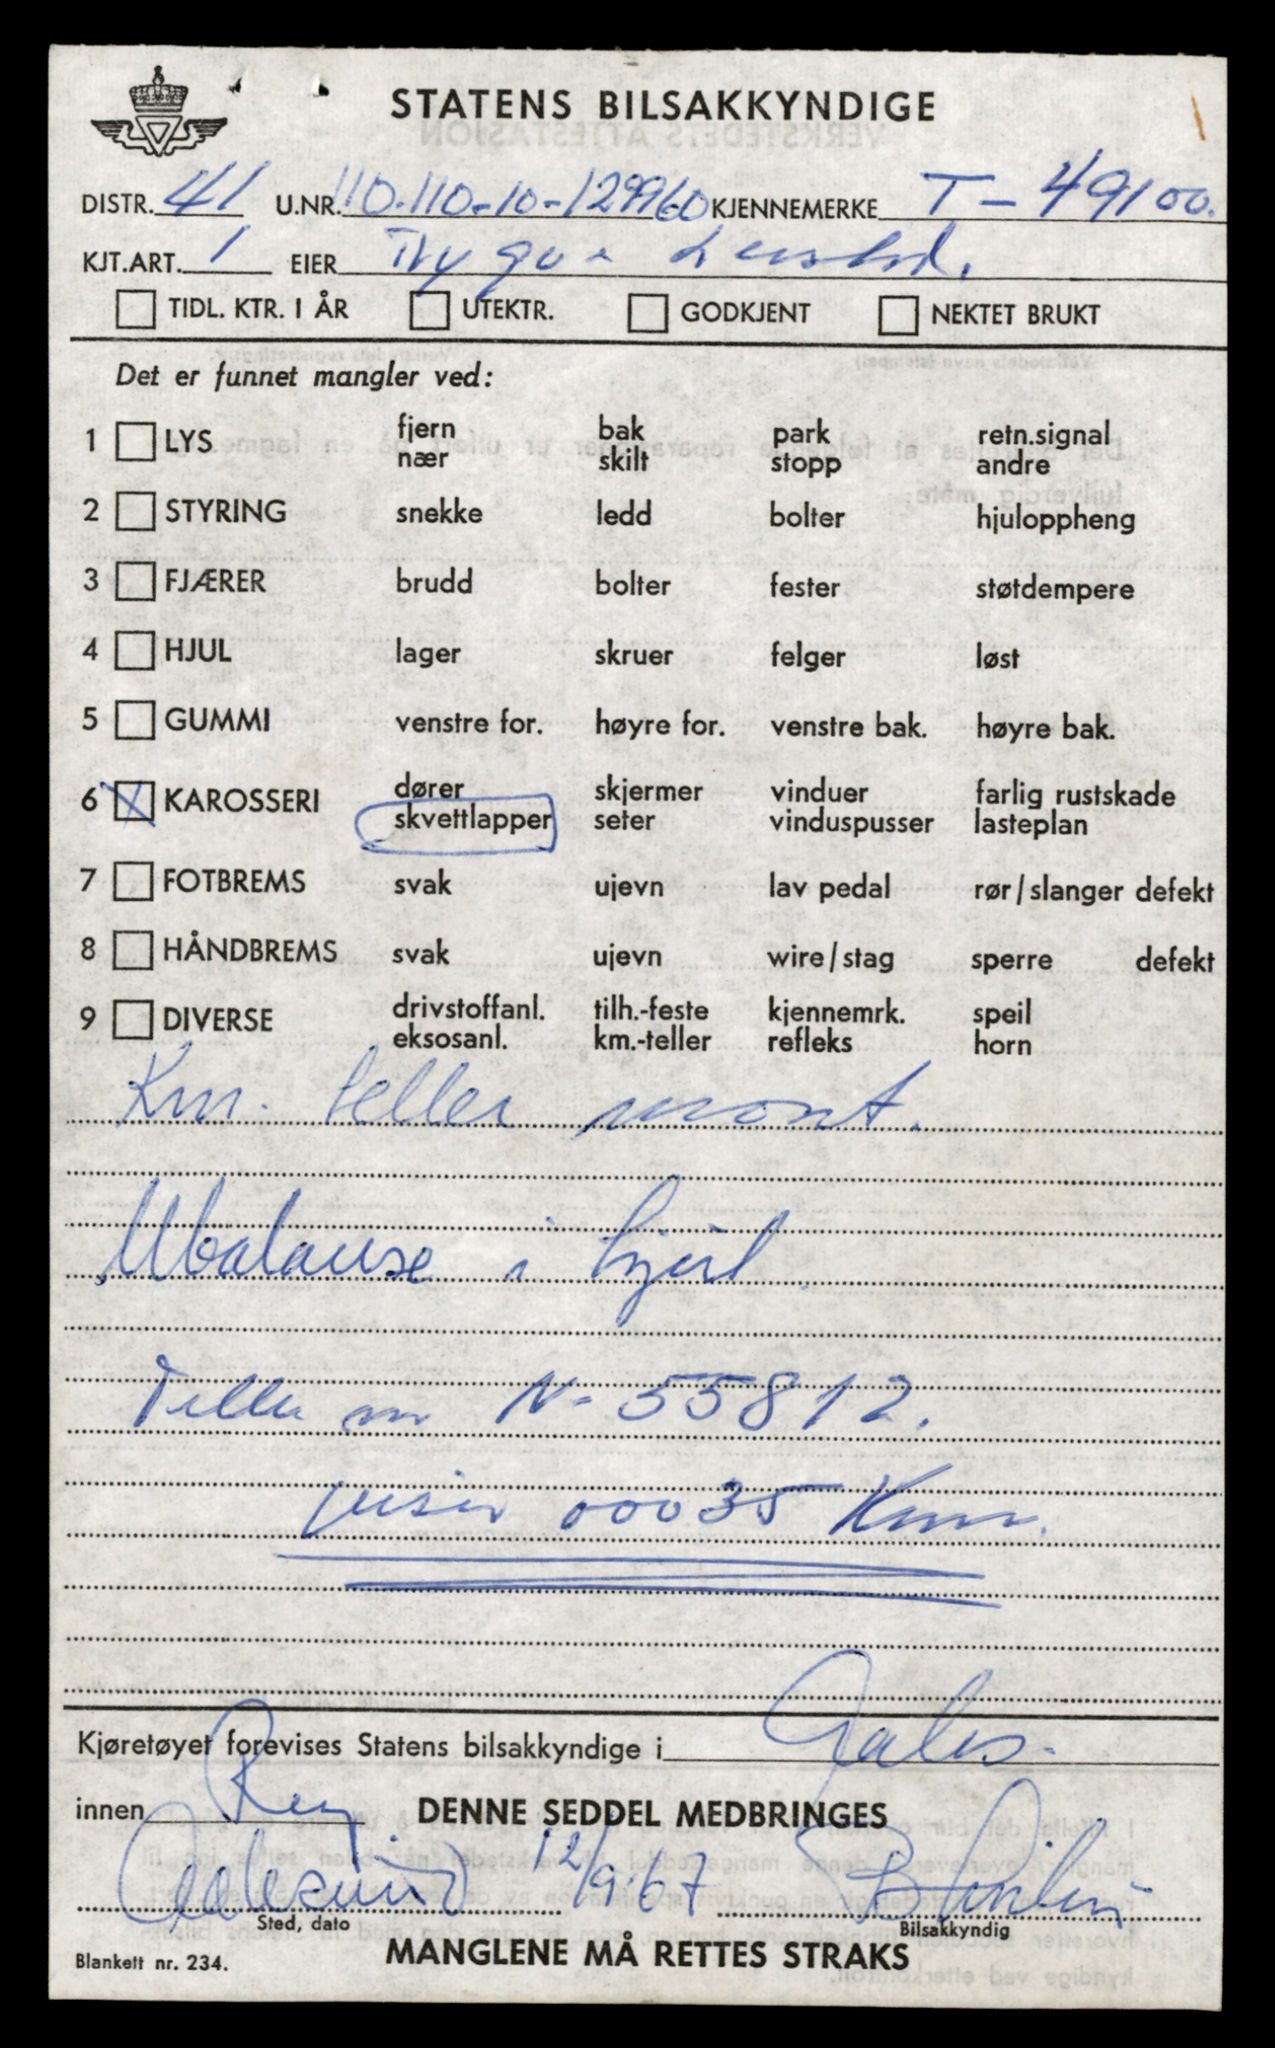 STATENS BILSAKKYNDIGE
DISTR. 41 U.NR. 110.110-10-129960 KJENNEMERKE T-49100.
KJT.ART. 1 EIER
TIDL. KTR. I ÅR UTEKTR. GODKJENT NEKTET BRUKT
Det er funnet mangler ved:
1 LYS fjern bak park retn.signal
nær skilt stopp andre
2 STYRING snekke ledd bolter hjuloppheng
3 FJÆRER brudd bolter fester støtdempere
4 HJUL lager skruer felger løst
5 GUMMI venstre for. høyre for. venstre bak. høyre bak.
6 KAROSSERI dører skjermer vinduer farlig rustskade
skvettlapper seter vinduspusser lasteplan
7 FOTBREMS svak ujevn lav pedal rør/slanger defekt
8 HÅNDBREMS svak ujevn wire/stag sperre defekt
9 DIVERSE drivstoffanl. tilh.-feste kjennemrk. speil
eksosanl. km.-teller refleks horn
Km. teller mont.
Ubalanse i hjul
Teller nr N-55812.
viser 00035 Km.
Kjøretøyet forevises Statens bilsakkyndige i
innen DENNE SEDDEL MEDBRINGES
Aalesund 12/9-67
Sted, dato Bilsakkyndig
Blankett nr. 234. MANGLENE MÅ RETTES STRAKS